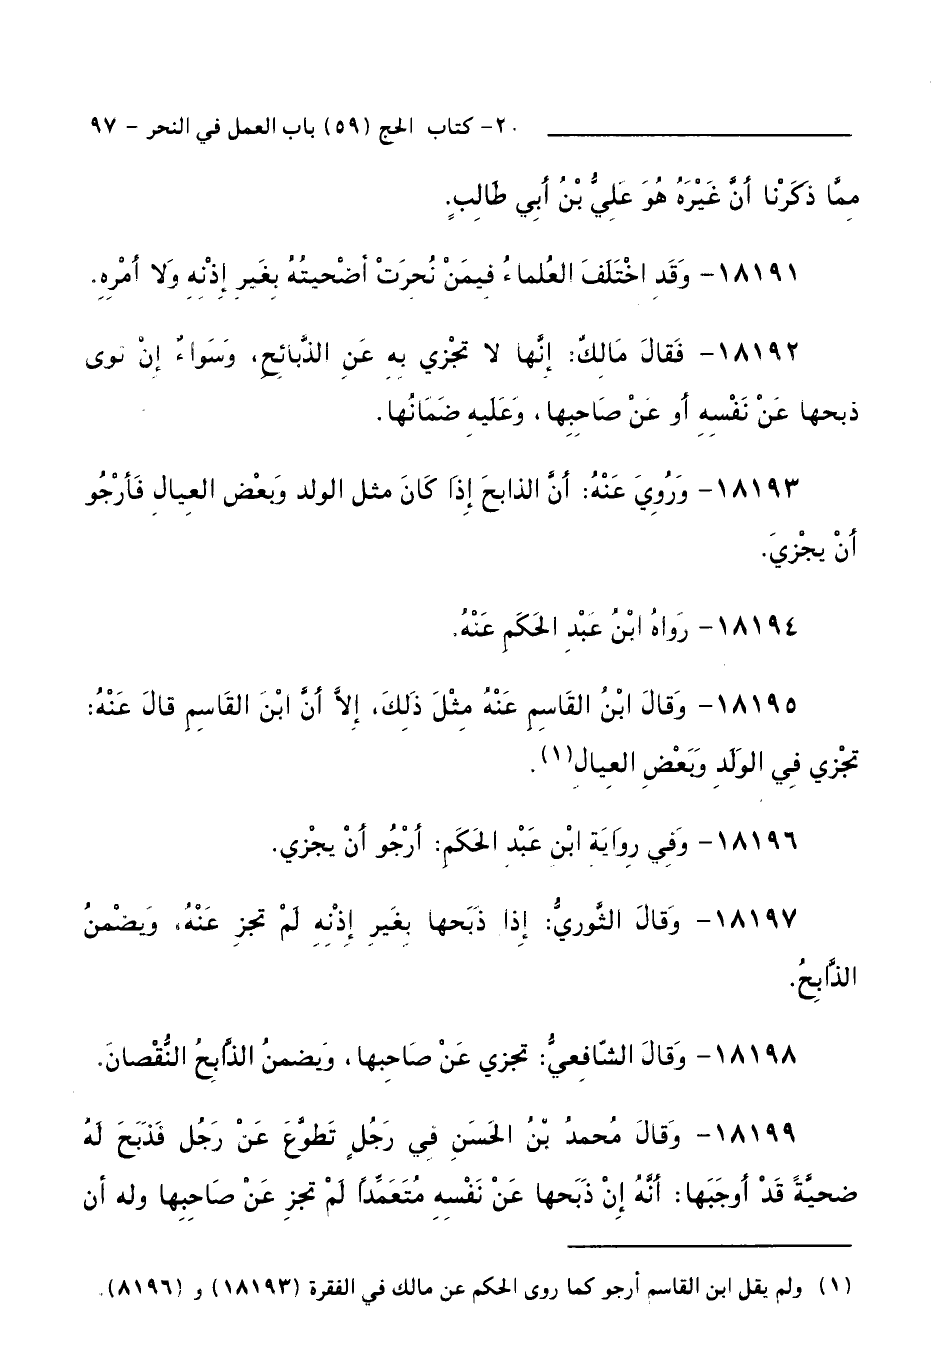 ٢٠- كتاب الحج (٥٩) باب العمل في النحر - ٩٧
مِمَّا ذَكَرْنا أنَّ غَيْرَهُ هُوَ عَلِيُّ بْنُ أبي طَالِبٍ.
١٨١٩١- وَقَدِ اخْتَلَفَ العُلماءُ فِيمَنْ نُحِرَتْ أضْحيتُهُ بِغَيرِ إذْنِهِ وَلا أمْرِهِ.
١٨١٩٢- فَقالَ مَالِكٌ: إنَّها لا تَجْزِي بِهِ عَنِ الذَّبائحِ، وَسَواءٌ إنْ نوى
ذبحها عَنْ نَفْسِهِ أو عَنْ صَاحِبِها، وَعَليهِ ضَمَانُها.
١٨١٩٣- وَرُوِيَ عَنْهُ: أنَّ الذابحَ إذَا كَانَ مثل الولدِ وَبَعْضِ العِيالِ فَأرْجُو
أنْ يجْزيَ.
١٨١٩٤- رَواهُ ابْنُ عَبْدِ الحَكَمِ عَنْهُ.
١٨١٩٥- وَقالَ ابْنُ القَاسِمِ عَنْهُ مِثْلَ ذَلِكَ، إلاَّ أنَّ ابْنَ القَاسِمِ قالَ عَنْهُ:
تَجْزي فِي الوَلَدِ وَبَعْضِ العِيالِ(١).
١٨١٩٦- وَفي رِوايَةِ ابْنِ عَبْدِ الحَكَمِ: أرْجُو أنْ يجْزي.
١٨١٩٧- وَقالَ الثَّوريُّ: إذا ذَبَحها بِغَيرِ إذْنِهِ لَمْ تجزِ عَنْهُ، وَيضْمنُ
الذَّابِحُ.
١٨١٩٨- وَقالَ الشّافعيُّ: تجزي عَنْ صَاحِبِها، وَيضمنُ الذَّابحُ النُّقْصانَ.
١٨١٩٩- وَقالَ مُحمدُ بْنُ الحَسَنِ فِي رَجُلٍ تَطوَّعَ عَنْ رَجُلٍ فَذَبَحَ لَهُ
ضحيَّةً قَدْ أوجَبَها: أنَّهُ إنْ ذَبَحها عَنْ نَفْسِهِ مُتَعَمِّداً لَمْ تجزِ عَنْ صَاحِبِها وله أن
(١) ولم يقل ابن القاسم أرجو كما روى الحكم عن مالك في الفقرة (١٨١٩٣) و (٨١٩٦).